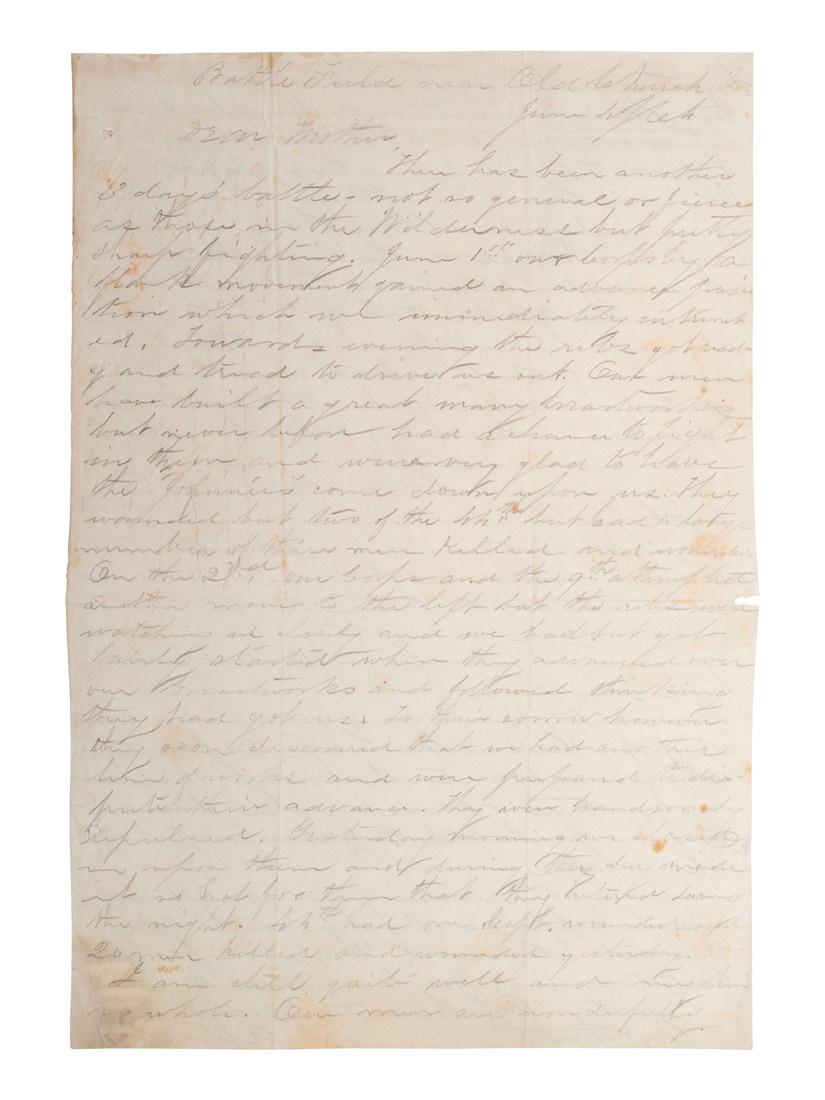 Battle Field near Old Church Va
June 4th
Dear Mother
There has been another
3 days' battle - not so general or fierce
as those in the Wilderness but pretty
sharp fighting. June 1st our Corps by a
flank movement gained an advance posi
tion which we immediately intrench
ed. Towards evening the rebs got read-
y and tried to drive us out. Our men
have built a great many breastworks
but never before had a chance to fight
in them and were very glad to have
the "Johnnies" come down upon us. They
wounded but two of the 44th but had a large
number of their men killed and wounded
On the 2nd our Corps and the 9th attempted
another move to the left but the rebs were
watching us closely and we had but got
fairly started when they advanced over
our breastworks and followed thinking
they had got us. To their sorrow however
they soon discovered that we had another
line of works and were prepared to dis-
pute their advance. They were handsomely
repulsed. Yesterday morning we closed
in upon them and during the day made
it so hot for them that they retired during
the night. 44th had one Capt. wounded and
20 men killed and wounded yesterday.
I am still quite well and my skin
is whole. Our men are wonderfully